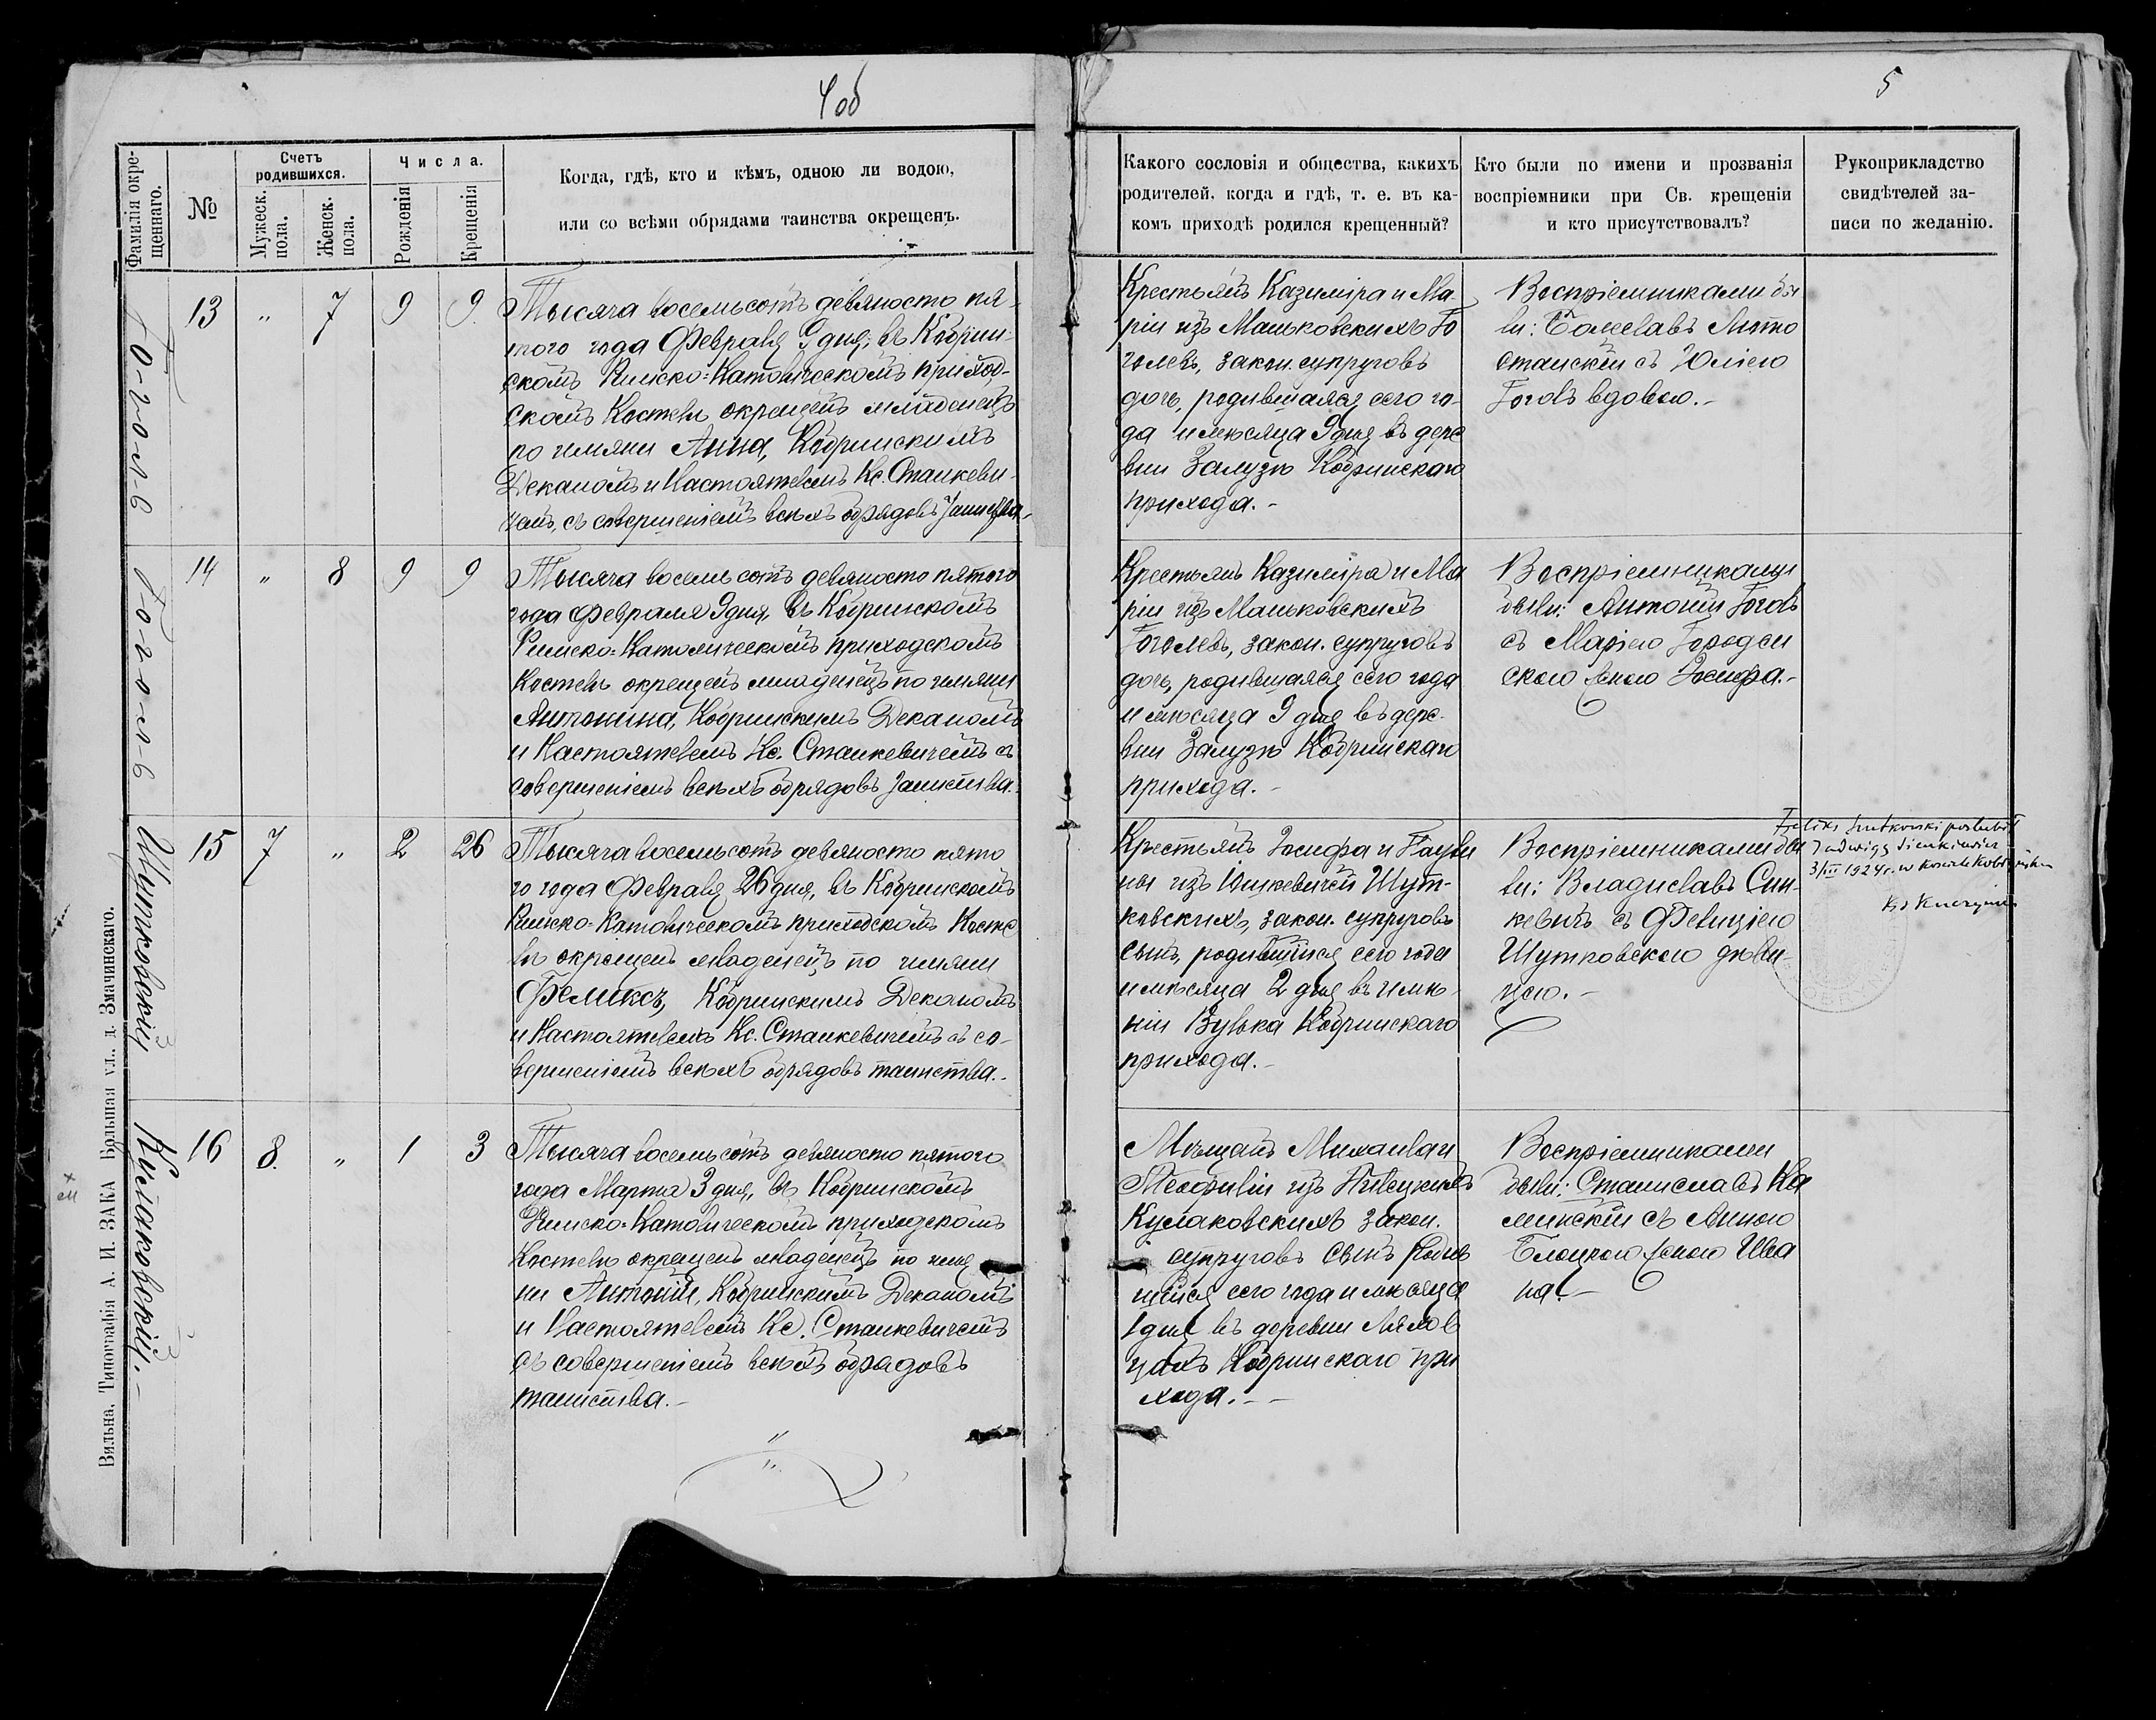 4 об
5
Фамилія окре-
щеннаго.
№
Счетъ
родившихся.
Мужеск.
пола.
Женск.
пола.
Числа.
Рожденія
Крещенія
Когда, гдѣ, кто и кѣмъ, одною ли водою,
или со всѣми обрядами таинства окрещенъ.
Какого сословія и общества, какихъ
родителей, когда и гдѣ, т. е. въ ка-
комъ приходѣ родился крещенный?
Кто были по имени и прозванія
воспріемники при Св. крещеніи
и кто присутствовалъ?
Рукоприкладство
свидѣтелей за-
писи по желанію.
Го-го-л-ь
13 " 7 9 9.
Тысяча восемьсотъ девяносто пя-
того года Февраля 9 дня, въ Кобрин-
скомъ Римско-Католическомъ приход-
скомъ Костелѣ окрещенъ младенецъ
по имяни Анна, Кобринскимъ
Деканомъ и Настоятелемъ Кс. Станкеви-
чемъ, съ совершеніемъ всѣхъ обрядовъ таинства.
Крестьянъ Казиміра и Ма-
ріи изъ Маньковскихъ Го
голевъ, закон. супруговъ
дочь, родившаяся сего го-
да и мѣсяца 9 дня въ дере
вни Залузю Кобринскаго
прихода.-
Воспріемниками бы
ли: Болеславъ Лито
станскій съ Юліею
Гоголь вдовою.-
Гоголь
14 " 8 9 9
Тысяча восемь сотъ девяносто пятого
года Февраля 9 дня, въ Кобринскомъ
Римско-Католическомъ приходскомъ
Костелѣ окрещенъ младенецъ по имяни
Антонина, Кобринскимъ Деканомъ
и Настоятелемъ Кс. Станкевичемъ съ
совершеніемъ всѣхъ обрядовъ таинства.
Крестьянъ Казиміра и Ма
ріи изъ Маньковскихъ
Гоголевъ, закон. супруговъ
дочь, родившаяся сего года
и мѣсяца 9 дня въ дере-
вни Залузю Кобринскаго
прихода.-
Воспріемниками
были: Антоній Гоголь
съ Маріею
скою женою Іосифа.-
Шутковскій
15 7 " 2 26
Тысяча восемьсотъ девяносто пято
го года Февраля 26 дня, въ Кобринскомъ
Римско-Католическомъ приходскомъ Косте
лѣ окрещенъ младенецъ по имяни
Феликсъ, Кобринскимъ Деканомъ
и Настоятелемъ Кс. Станкевичемъ съ со-
вершеніемъ всѣхъ обрядовъ таинства.-
Крестьянъ Іосифа и Паули
ны изъ Шут-
ковскихъ, закон. супруговъ
сынъ, родившійся сего года
и мѣсяца 2 дня въ имѣ-
ніи Вулька Кобринскаго
прихода.-
Воспріемниками бы
ли: Владиславъ Син-
кевичъ съ Фелиціею
Шутковскою дѣви-
цею.-
Feliks Szutkowski poślubił
Jadwigę Sienkiewicz
3/III 1924 r. w kościele
Ks
Кулаковскій.-
16 8. " 1 3
Тысяча восемьсотъ девяносто пятого
года Марта 3 дня, въ Кобринскомъ
Римско-Католическомъ приходскомъ
Костелѣ окрещенъ младенецъ по имя
ни Антоній, Кобринскимъ Деканомъ
и Настоятелемъ Кс. Станкевичемъ
съ совершеніемъ всѣхъ обрядовъ
таинства.-
Мѣщанъ Михаила и
Теофиліи изъ
Кулаковскихъ закон.
супруговъ сынъ родив
шійся сего года и мѣсяца
1 дня въ деревни Ляхов
цахъ Кобринскаго при
хода.--
Воспріемниками
были: Станиславъ Ка
минскій съ Анною
Блоцкою женою Ива
на.-
Вильна, Типографія А. И. ЗАКА Большая ул., д. Змачинскаго.